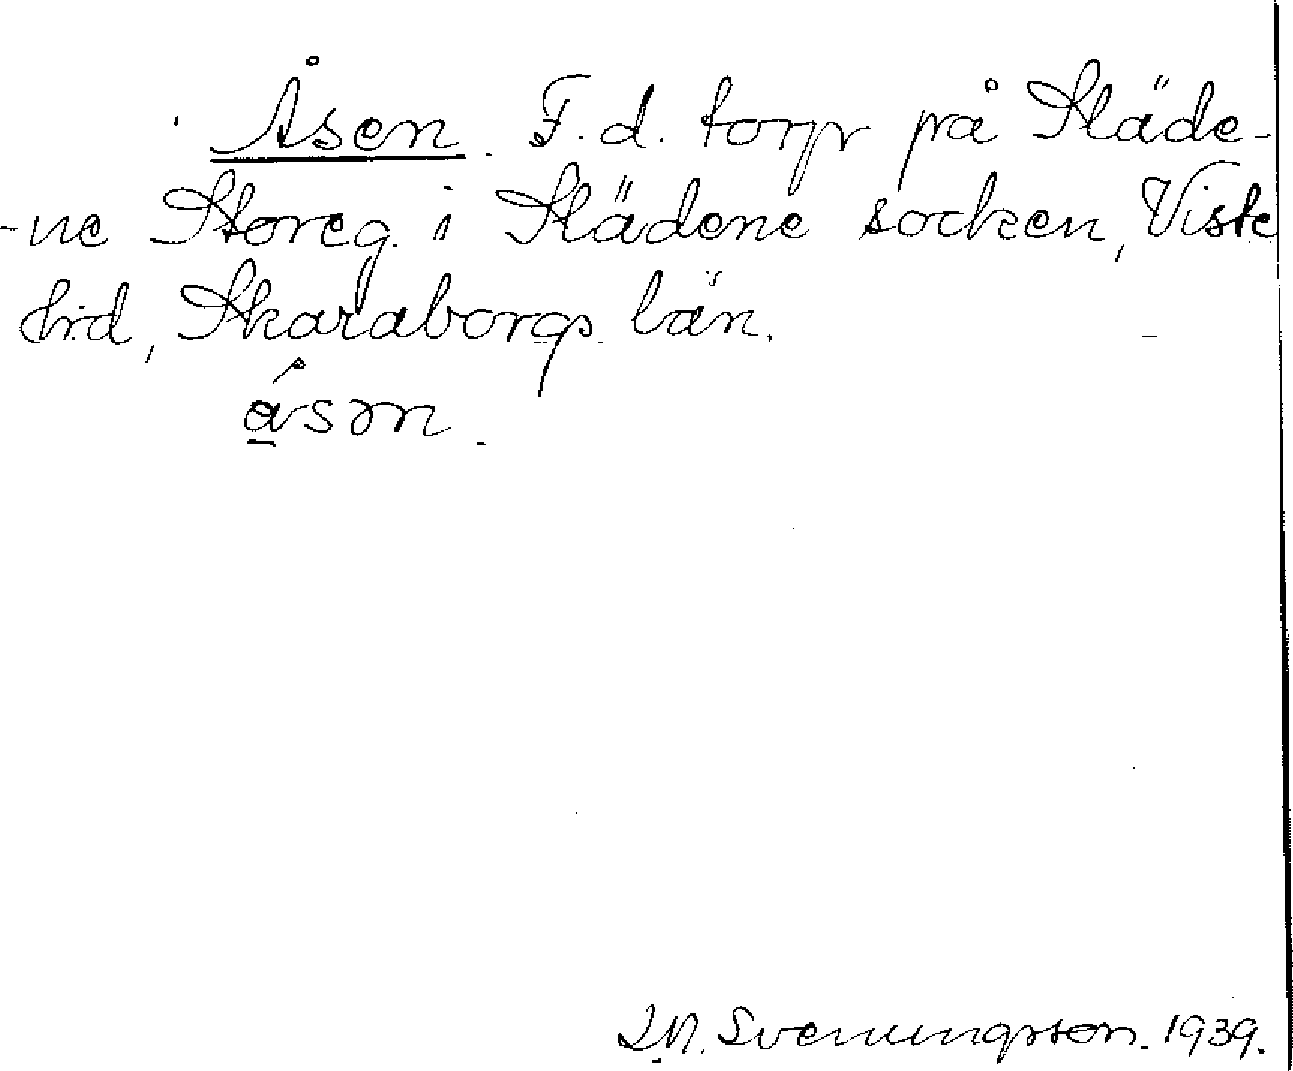 Åsen. F.d. torp på Släde-
-ne Storeg. i Slädene socken, Viste
hrd, Skaraborgs län.
ǻ̱sən.
Svenungsson. 1939.